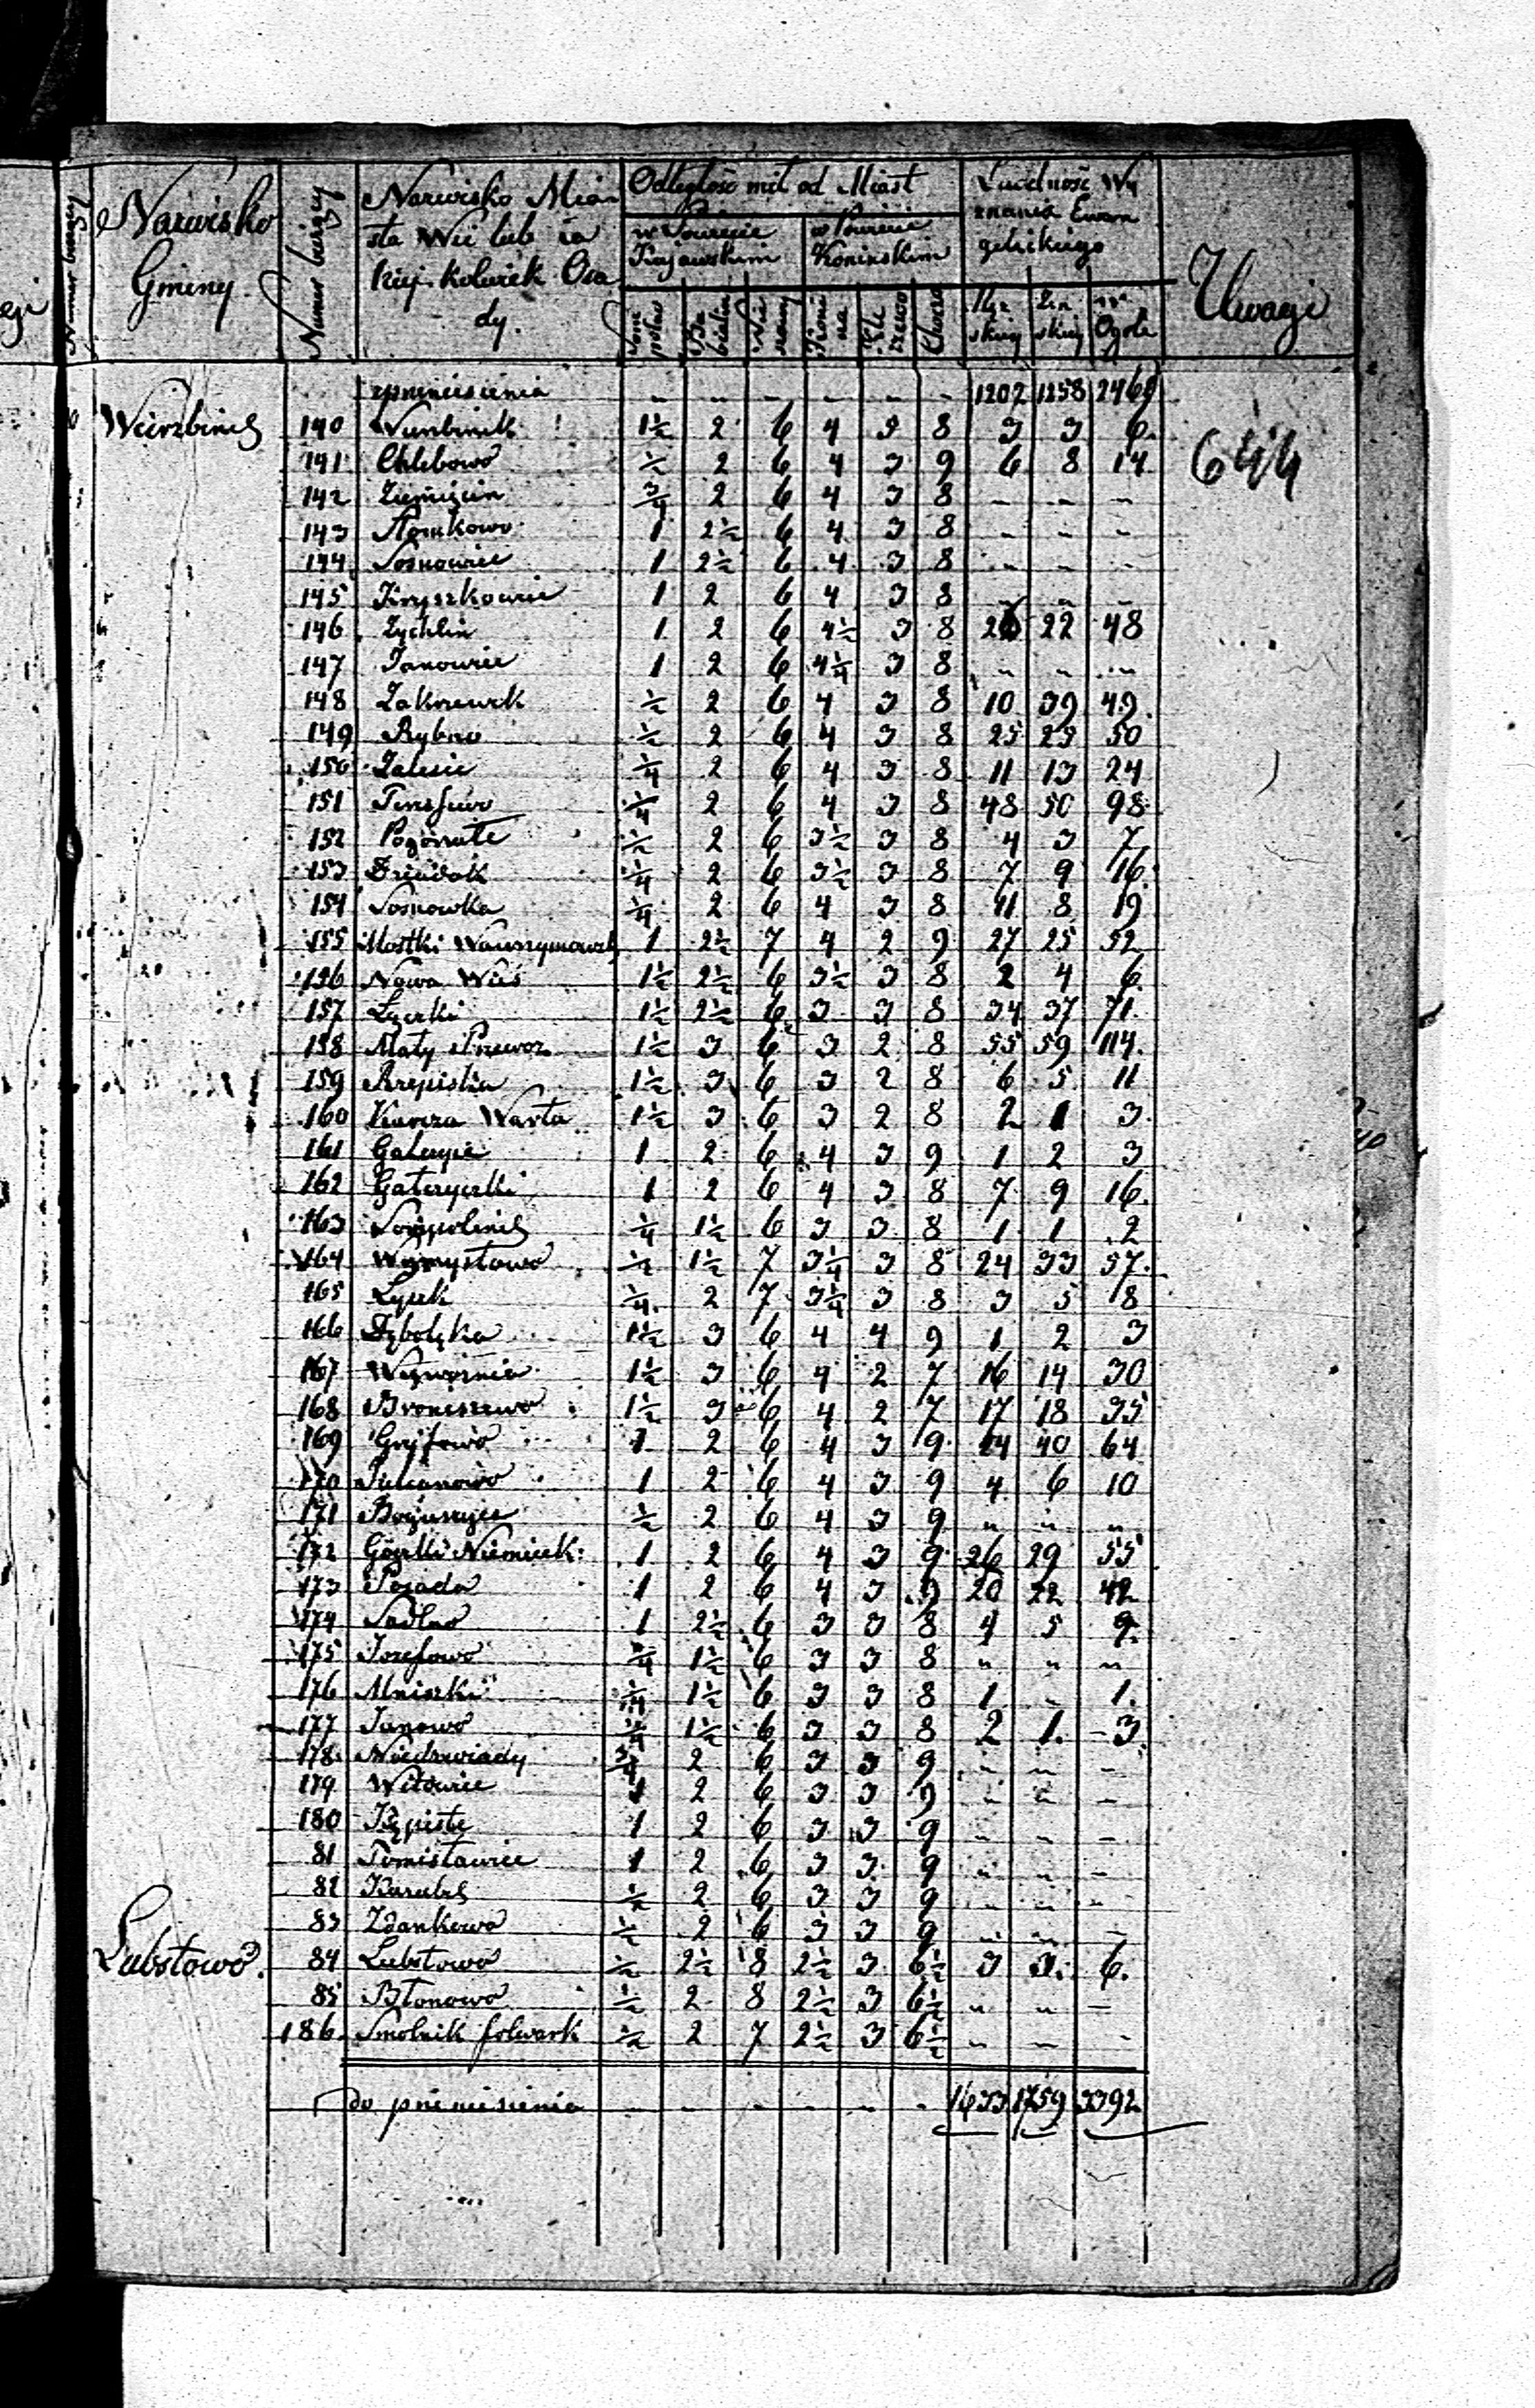 Nazwisko Gminy.
Numer bieżący
Nazwisko Mia
sta Wsi lub ia
kiej kolwiek Osa
dy.
Odległość mil od Miast
w Powiecie Kujawskim
w Powiecie Konińskim
Ludność Wy
znania Ewan
gelickiego
Uwagi
Ogółe
zprzeniesienia - - - - - - 1202 1258 2460
Wierzbinek 140 Wierzbinek 1½ 2 6 4 3 8 3 3 6.
644
141 Chlebowo ½ 2 6 4 3 9 6 8 14
142 Ziemięcin ¾ 2 6 4 3 8 - - -
143 Słomkowo 1 2½ 6 4 3 8 - - -
144 Sosnowiec 1 2½ 6 4 3 8 - - -
145 Kryszkowice 1 2 6 4 3 8 - - -
146 Zychlin 1 2 6 4½ 3 8 26 22 48
147 Janowice 1 2 6 4¼ 3 8 - - -
148 Zakrzewek ½ 2 6 4 3 8 10 39 49.
149 Rybno ½ 2 6 4 3 8 25 25 50
150 Zalesie ¼ 2 6 4 3 8 11 13 24
151 ¼ 2 6 4 3 8 48 50 98
152 ½ 2 6 3½ 3 8 4 3 7
153 Dziadak ¼ 2 6 3½ 3 8 7 9 16
154 Sosnowka ¼ 2 6 4 3 8 11 8 19
155 Mostki 1 2½ 7 4 2 9 27 25 52
156 Nowa Wieś 1½ 2½ 6 3½ 3 8 2 4 6
157 Łączki 1½ 2½ 6 3 3 8 34 37 71.
158 Mały Przewoz 1½ 3 6 3 2 8 55 59 114.
159 Rzepiska 1½ 3 6 3 2 8 6 5 11
160 Kurza Warta 1½ 3 6 3 2 8 2 1 3
161 Galczyce 1 2 6 4 3 9 1 2 3
162 Galczyczki 1 2 6 4 3 8 7 9 16.
163 Sompolinek ¼ 1½ 6 3 3 8 1 1 2
164 Wymysłowo ½ 1½ 7 3¼ 3 8 24 33 57.
165 Lysek ¼ 2 7 3¼ 3 8 3 5 8
166 Dębołęka 1½ 3 6 4 4 9 1 2 3
167 Węzwoźnia 1½ 3 6 4 2 7 16 14 30
168 Broniszewo 1½ 3 6 4 2 7 17 18 35
169 Gryfowo 1 2 6 4 3 9 24 40 64
170 Julianowo 1 2 6 4 3 9 4 6 10
171 Boguszyce ½ 2 6 4 3 9 " " "
172 Górki Niemieck: 1 2 6 4 3 9 26 29 55
173 Posada 1 2 6 4 3 9 20 22 42
174 Sadlno 1 2½ 6 3 3 8 4 5 9.
175 Jozefowo ¾ 1½ 6 3 3 8 " " "
176 Mniszki ¼ 1½ 6 3 3 8 1 - 1.
177 Janowo ¾ 1½ 6 3 3 8 2 1. 3.
178 Niedzwiady ¾ 2 6 3 3 9 - - -
179 Witowice 1 2 6 3 3 9 - - -
180 Kępiste 1 2 6 3 3 9 - - -
81 Tomisławice 1 2 6 3 3 9 - - -
82 Karubek ½ 2 6 3 3 9 - - -
83 Zdankowo ½ 2 6 3 3 9 - - -
Lubstowo. 84 Lubstowo ½ 2½ 8 2½ 3 6½ 3 3. 6.
85 Błonowo ½ 2 8 2½ 3 6½ " " -
186. Smolnik folwark ½ 2 7 2½ 3 6½ - - -
do przeniesienia - - - - - - 1633 1759 3392